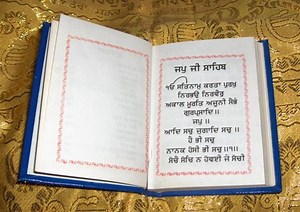 ਜਪੁ ਜੀ ਸਾਹਿਬ
ੴ ਸਤਿਨਾਮੁ ਕਰਤਾ ਪੁਰਖੁ
ਨਿਰਭਉ ਨਿਰਵੈਰੁ
ਅਕਾਲ ਮੂਰਤਿ ਅਜੂਨੀ ਸੈਭੰ
ਗੁਰਪ੍ਰਸਾਦਿ॥
ਜਪੁ ॥
ਆਦਿ ਸਚੁ ਜੁਗਾਦਿ ਸਚੁ ॥
ਹੈ ਭੀ ਸਚੁ
ਨਾਨਕ ਹੋਸੀ ਭੀ ਸਚੁ ॥੧॥
ਸੋਚੈ ਸੋਚਿ ਨ ਹੋਵਈ ਜੇ ਸੋਚੀ